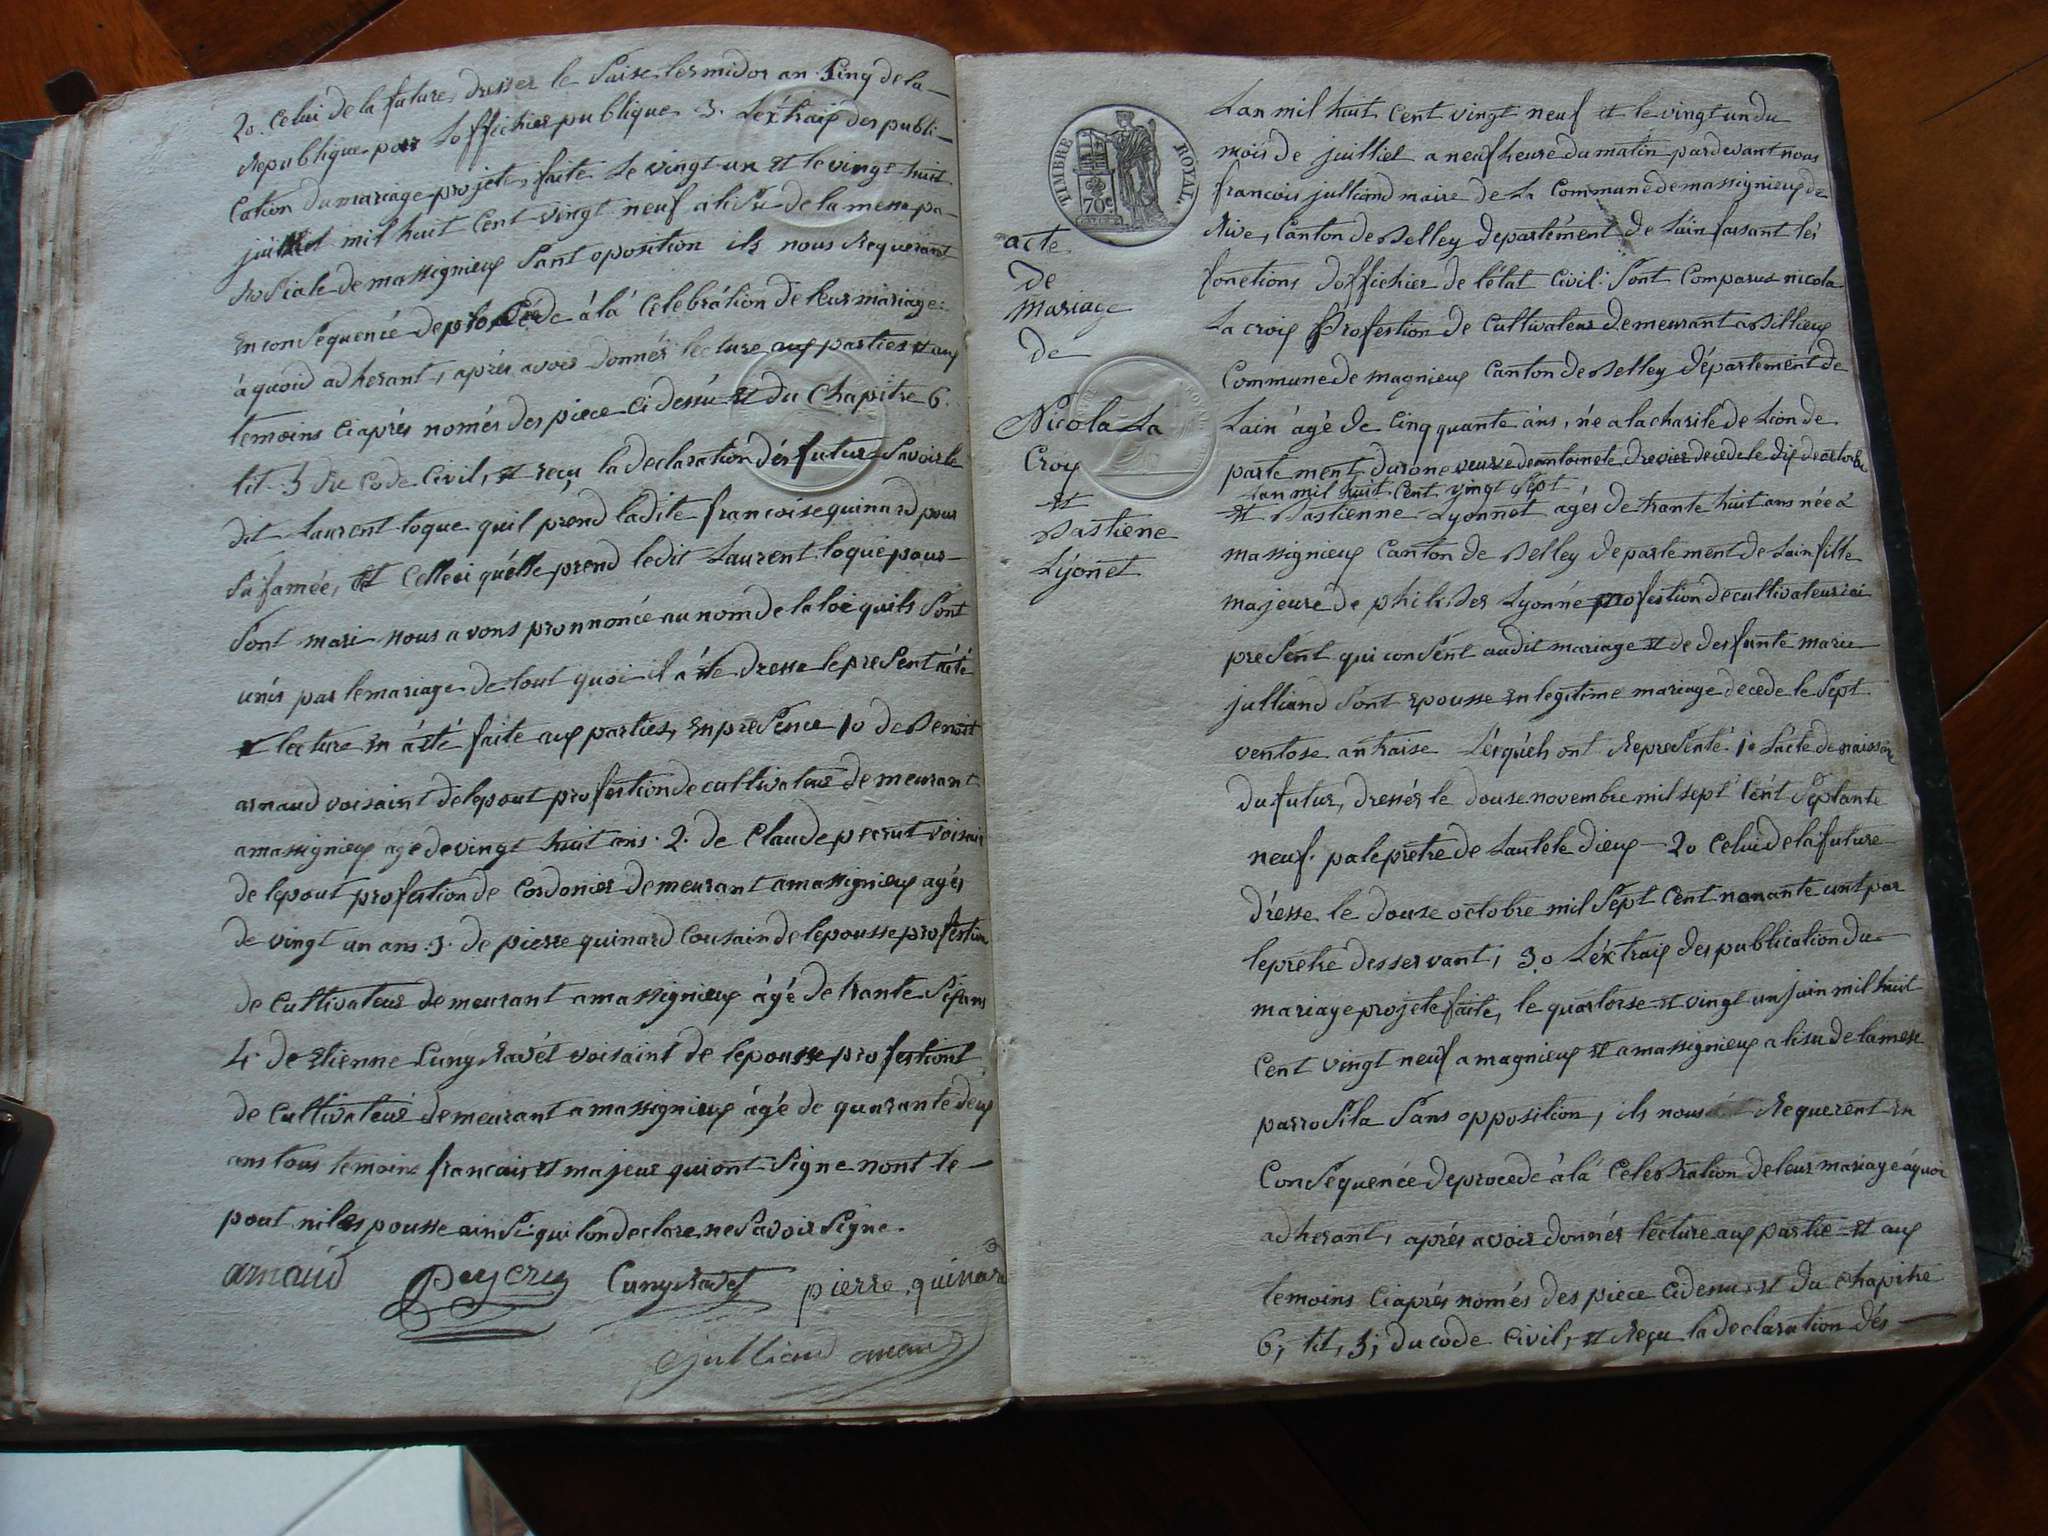 2o. celui de la future, dresser le saise termidor an sinq de la
Republique par Loffichier publique 3. Léxtraix des publi-
cation du mariage projeté, faite le vingt un et le vingt huit
juillet mil huit cent vingt neuf alisu de la messe pa-
rosiale de massignieux sant oposition ils nous Requerant
en conséquencé de procédé à là celebràtion de leur màriage:
à quoid adherant, aprés avoir donnér lecture aux parties et aux
temoins ciaprés només des piece ci dessu et du chapitre 6.
tit. 5 du code civil, et reçu la declaration dés futur savoir le
dit Laurent toque quil prend ladite francoise quinard pour
sa famée, et celleci quélle prend ledit Laurent toqué pour
sont mari nous avons pronnoncé au nom de la loi quils sont
unis par le mariage de tout quoi il à éte dresse le present àcté
et lecture en à été faite aux parties, en presence 1o de Benoit
arnaud voisaint delepout profestion de cultivateur demeurant
a massignieux agé de vingt huit ans. 2. de claude voisain
de lepout profestion de cordonier demeurant a massignieux agés
de vingt un ans. 3. de pierre quinard cousain de lepousse profestion
de cultivateur demeurant a massignieux àgé de trante sixans
4. de Etienne Cuny Ravét voisaint de lepousse profestiont
de cultivateur demeurant a massignieux àgé de quarante deux
ans tous temoins francais et majeur qui ont signe nont le-
pout ni les pousse ainsi qui lon declare ne savoir signe.
arnaud Cuny Ravet pierre quinard
julliand
TIMBRE ROYAL
70c
acte
de
Mariage
de
Nicola La
Croix
et
Bastiene
Lyonet
Lan mil huit cent vingt neuf et le vingt un du
mois de juilliet a neuf heure du matin pardevant nous
francois julliand maire de La Commune de massignieux de
Rive, canton de Belley departément de Lain faisant lés
fonctions doffichier de létat civil: sont comparus nicola
La croix Profestion de cultivateur demeurant a Billieux
Commune de magnieux canton de Belley département de
Lain àgé de cinqquante àns, né a la charité de Lion de
partement durone veuve de antoinete decede le dix de octobre
Lan mil huit cent vingt sept,
et Bastienne Lyonnet agés de trante huit ans née à
massignieux canton de Belley departement de Lain fille
majeure de Lyonné profestion de cultivateur ici
present qui consént audit mariage et de desfunte marie
julliand sont epousse en legitime mariage decede le sept
ventose an traise Lésquéls ont Representé 1o Lacte de naissan
du futur, dressér le douse novembre mil sept cént septante
neuf. pa le prétre de Lautele dieux 2o celui de la future
drésse le douze octobre mil sept cent nonante unt par
le prétre desservant, 3o Léxtraix des publication du
mariage projeté faite, le quartorse et vingt un juin mil huit
cent vingt neuf a magnieux et a massignieux a lisu de la messe
parrosila sans opposition, ils nous Requerent en
consequencé de procedé à là celebration de leur mariage à quoi
adherant, aprés avoir donnér lécture aux partie et aux
temoins ciaprés només des piece cidessu et du chapitre
6, tit. 5, du code civil, et Reçu la declaration dés